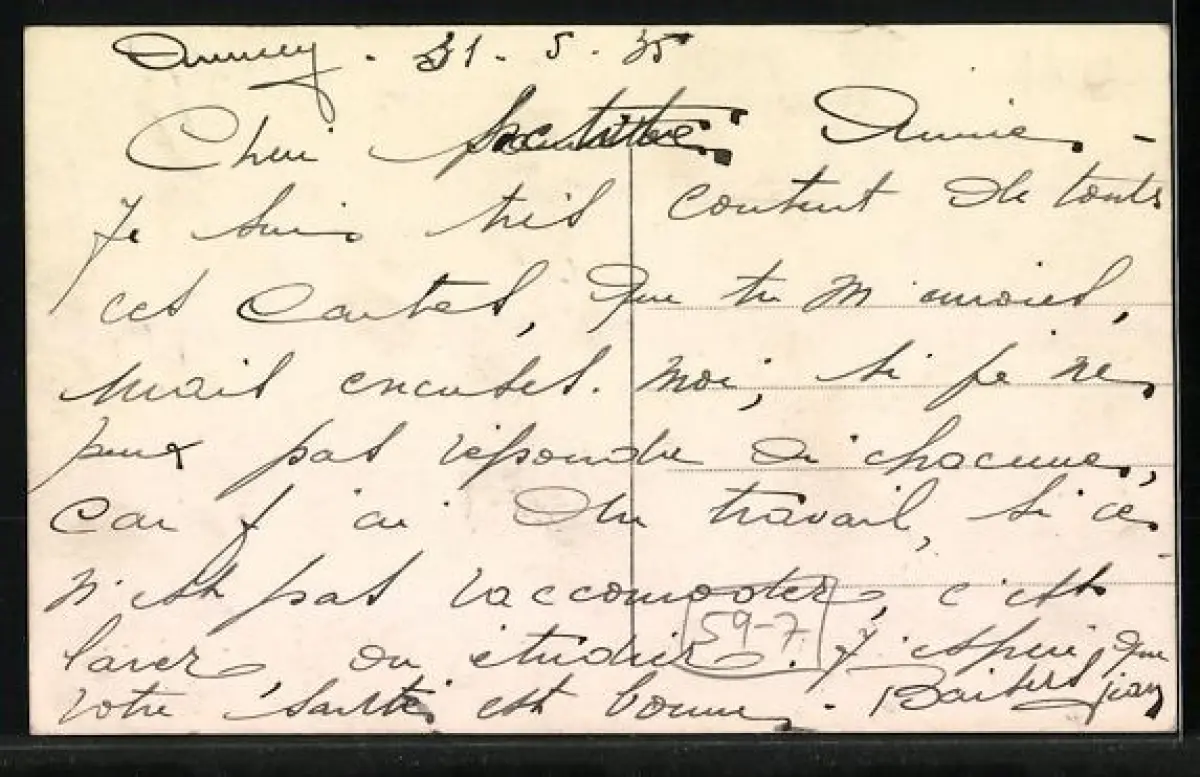 Annecy. 31. 5. 35
Cheri petite Annie. -
Je suis très content de toute
ces cartes, que tu m'envoies,
mais excuses. moi, si je ne
peux pas répondre à chacune,
car j'ai du travail, si ce
n'est pas raccomoder, c'est
laver, ou étudier. J'espère, que
59-7
votre santé est bonne. - Baisers